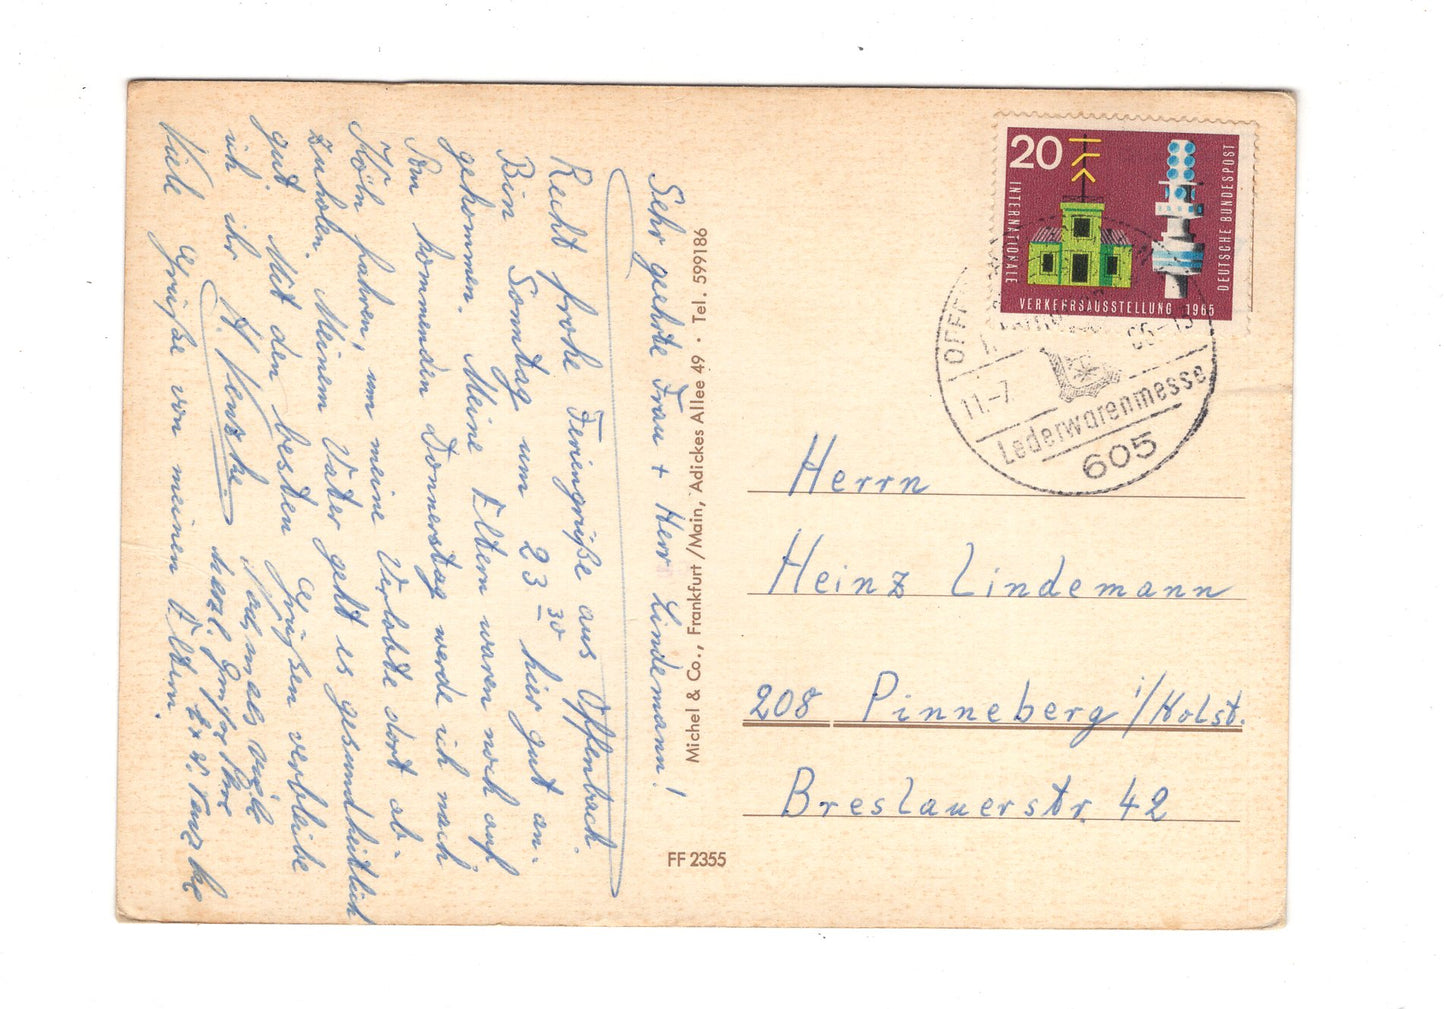 Sehr geehrte Frau + Herr Lindemann!
Recht frohe Feriengrüße aus Offenbach.
Bin Sonntag um 23 30 hier gut an-
gekommen. Meine Eltern waren noch auf
Am kommenden Donnerstag werde ich nach
Köln fahren, um meine Verlobte dort ab-
zuholen. Meinem Vater geht es gesundheitlich
gut. Mit den besten Grüßen verbleibe
ich ihr
Viele Grüße von meinen Eltern.
Michel & Co., Frankfurt/Main, Adickes Allee 49 · Tel. 599186
FF 2355
20
INTERNATIONALE
VERKEHRSAUSSTELLUNG 1965
DEUTSCHE BUNDESPOST
OFF
11.-7
Lederwarenmesse
605
Herrn
Heinz Lindemann
208 Pinneberg i/Holst.
Breslauerstr. 42